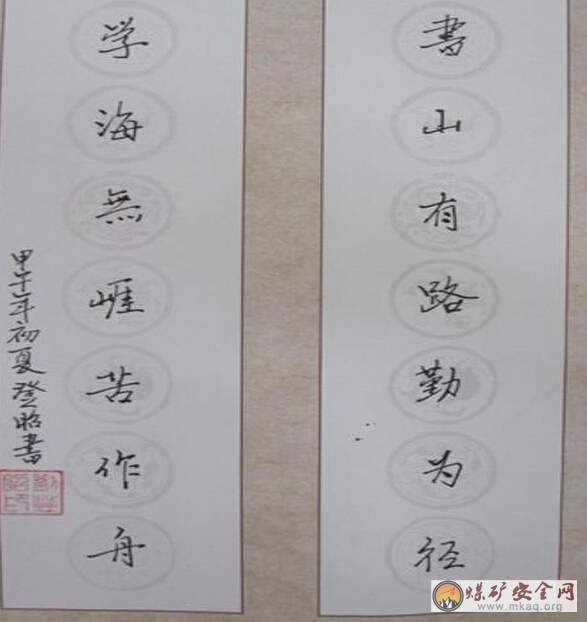 書山有路勤为径
学海無崕苦作舟
甲午年初夏登昭書
煤矿安全网
www.mkaq.org